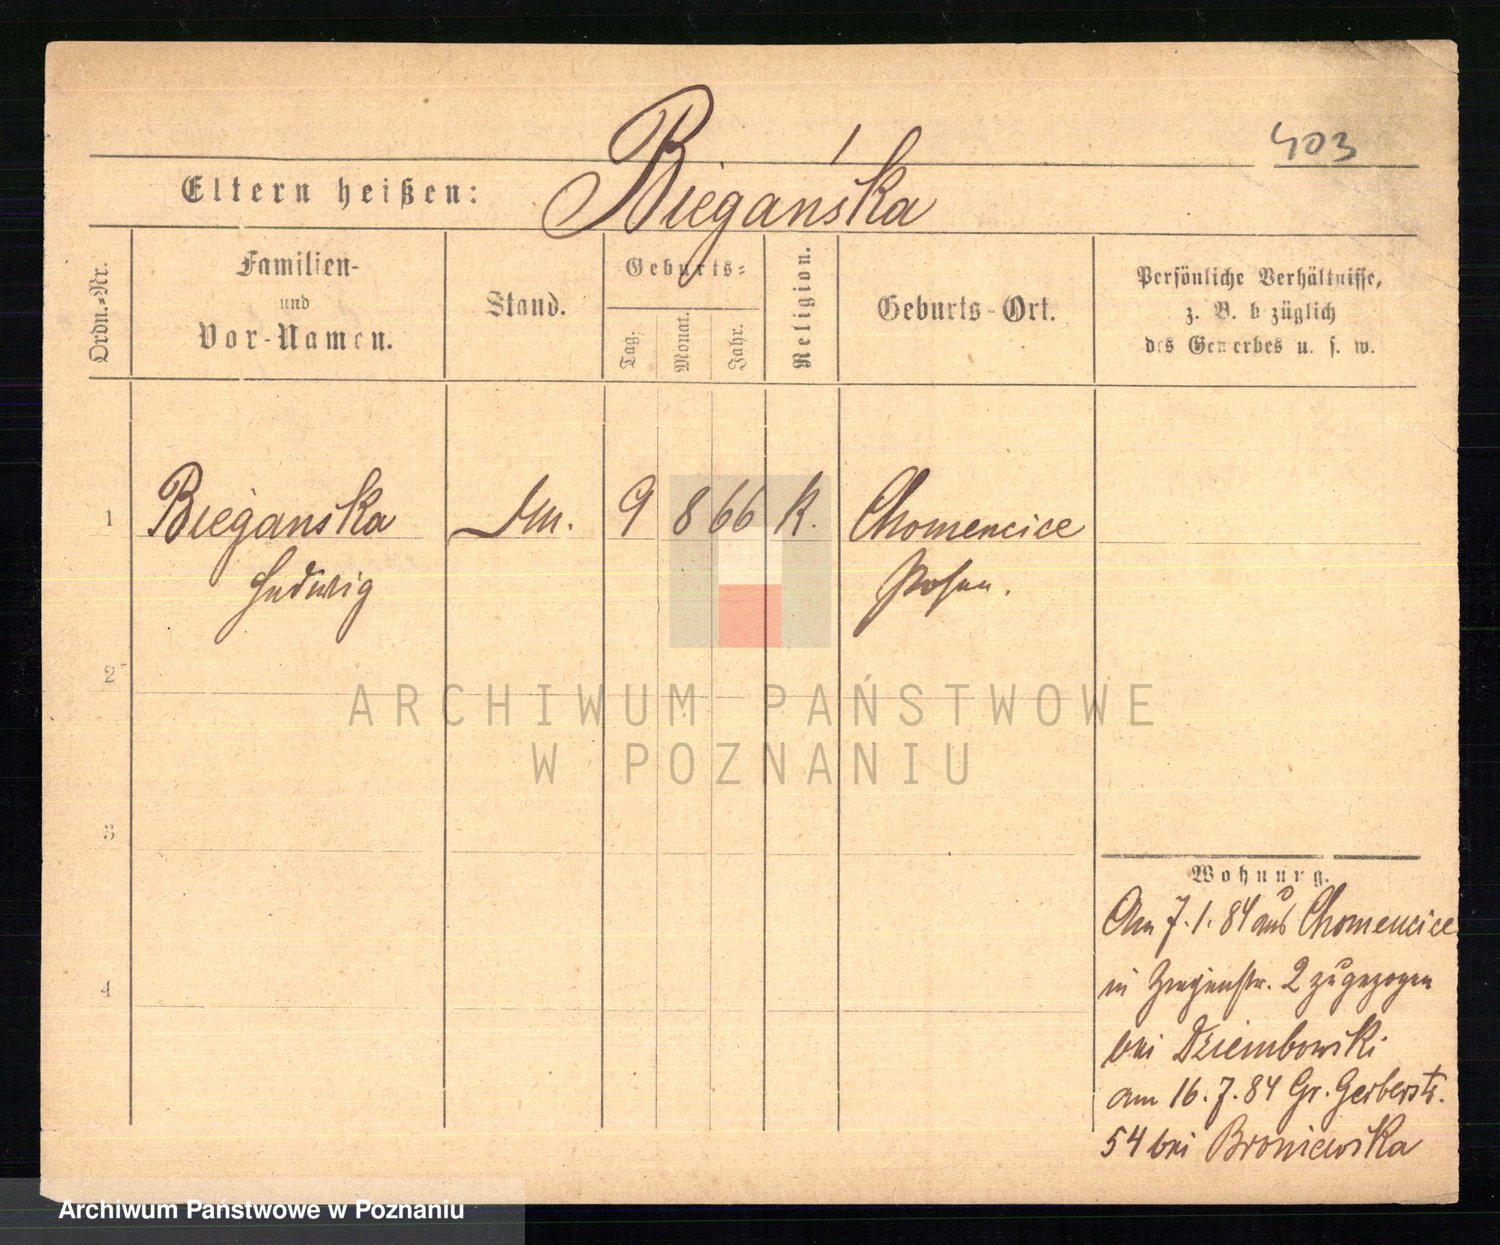 403
Biegańska
Eltern heißen:
Ordn.=Nr.
Familien-
und
Vor-Namen.
Stand.
Geburts=
Tag.
Monat.
Jahr.
Religion.
Geburts-Ort.
Persönliche Verhältnisse,
z. B. bezüglich
des Gewerbes u. s. w.
1 Bieganska 9 8 66 K. Chomencice
Hedwig Posen.
2
3
4
Wohnung.
Am 7.1.84 aus Chomencice
in 2 zugezogen
bei Dziembowski
am 16.7.84 Gr. Gerberstr.
54 bei Broniewska
ARCHIWUM PAŃSTWOWE
W POZNANIU
Archiwum Państwowe w Poznaniu